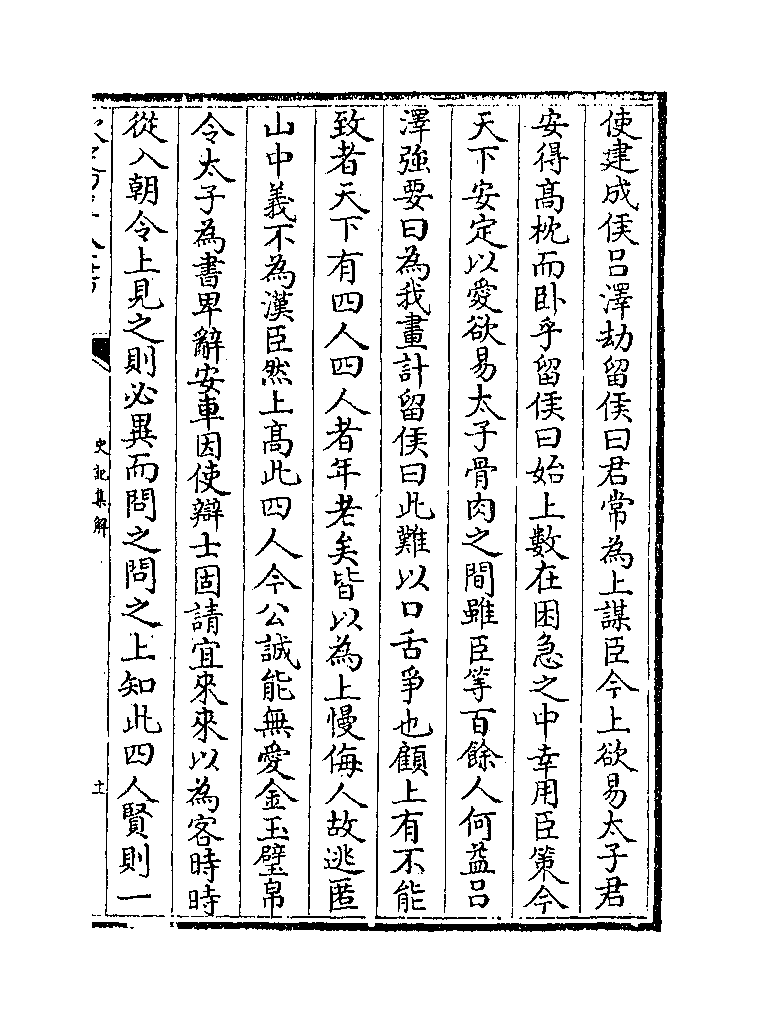 使建成侯吕澤劫留侯曰君常為上謀臣今上欲易太子君
安得髙枕而卧乎留侯曰始上數在困急之中幸用臣䇿今
天下安定以愛欲易太子骨肉之間雖臣等百餘人何益吕
澤強要曰為我畫計留侯曰此難以口舌爭也顧上有不能
致者天下有四人四人者年老矣皆以為上慢侮人故逃匿
山中義不為漢臣然上髙此四人今公誠能無愛金玉璧帛
令太子為書卑辭安車因使辯士固請宜來來以為客時時
從入朝令上見之則必異而問之問之上知此四人賢則一
史記集解